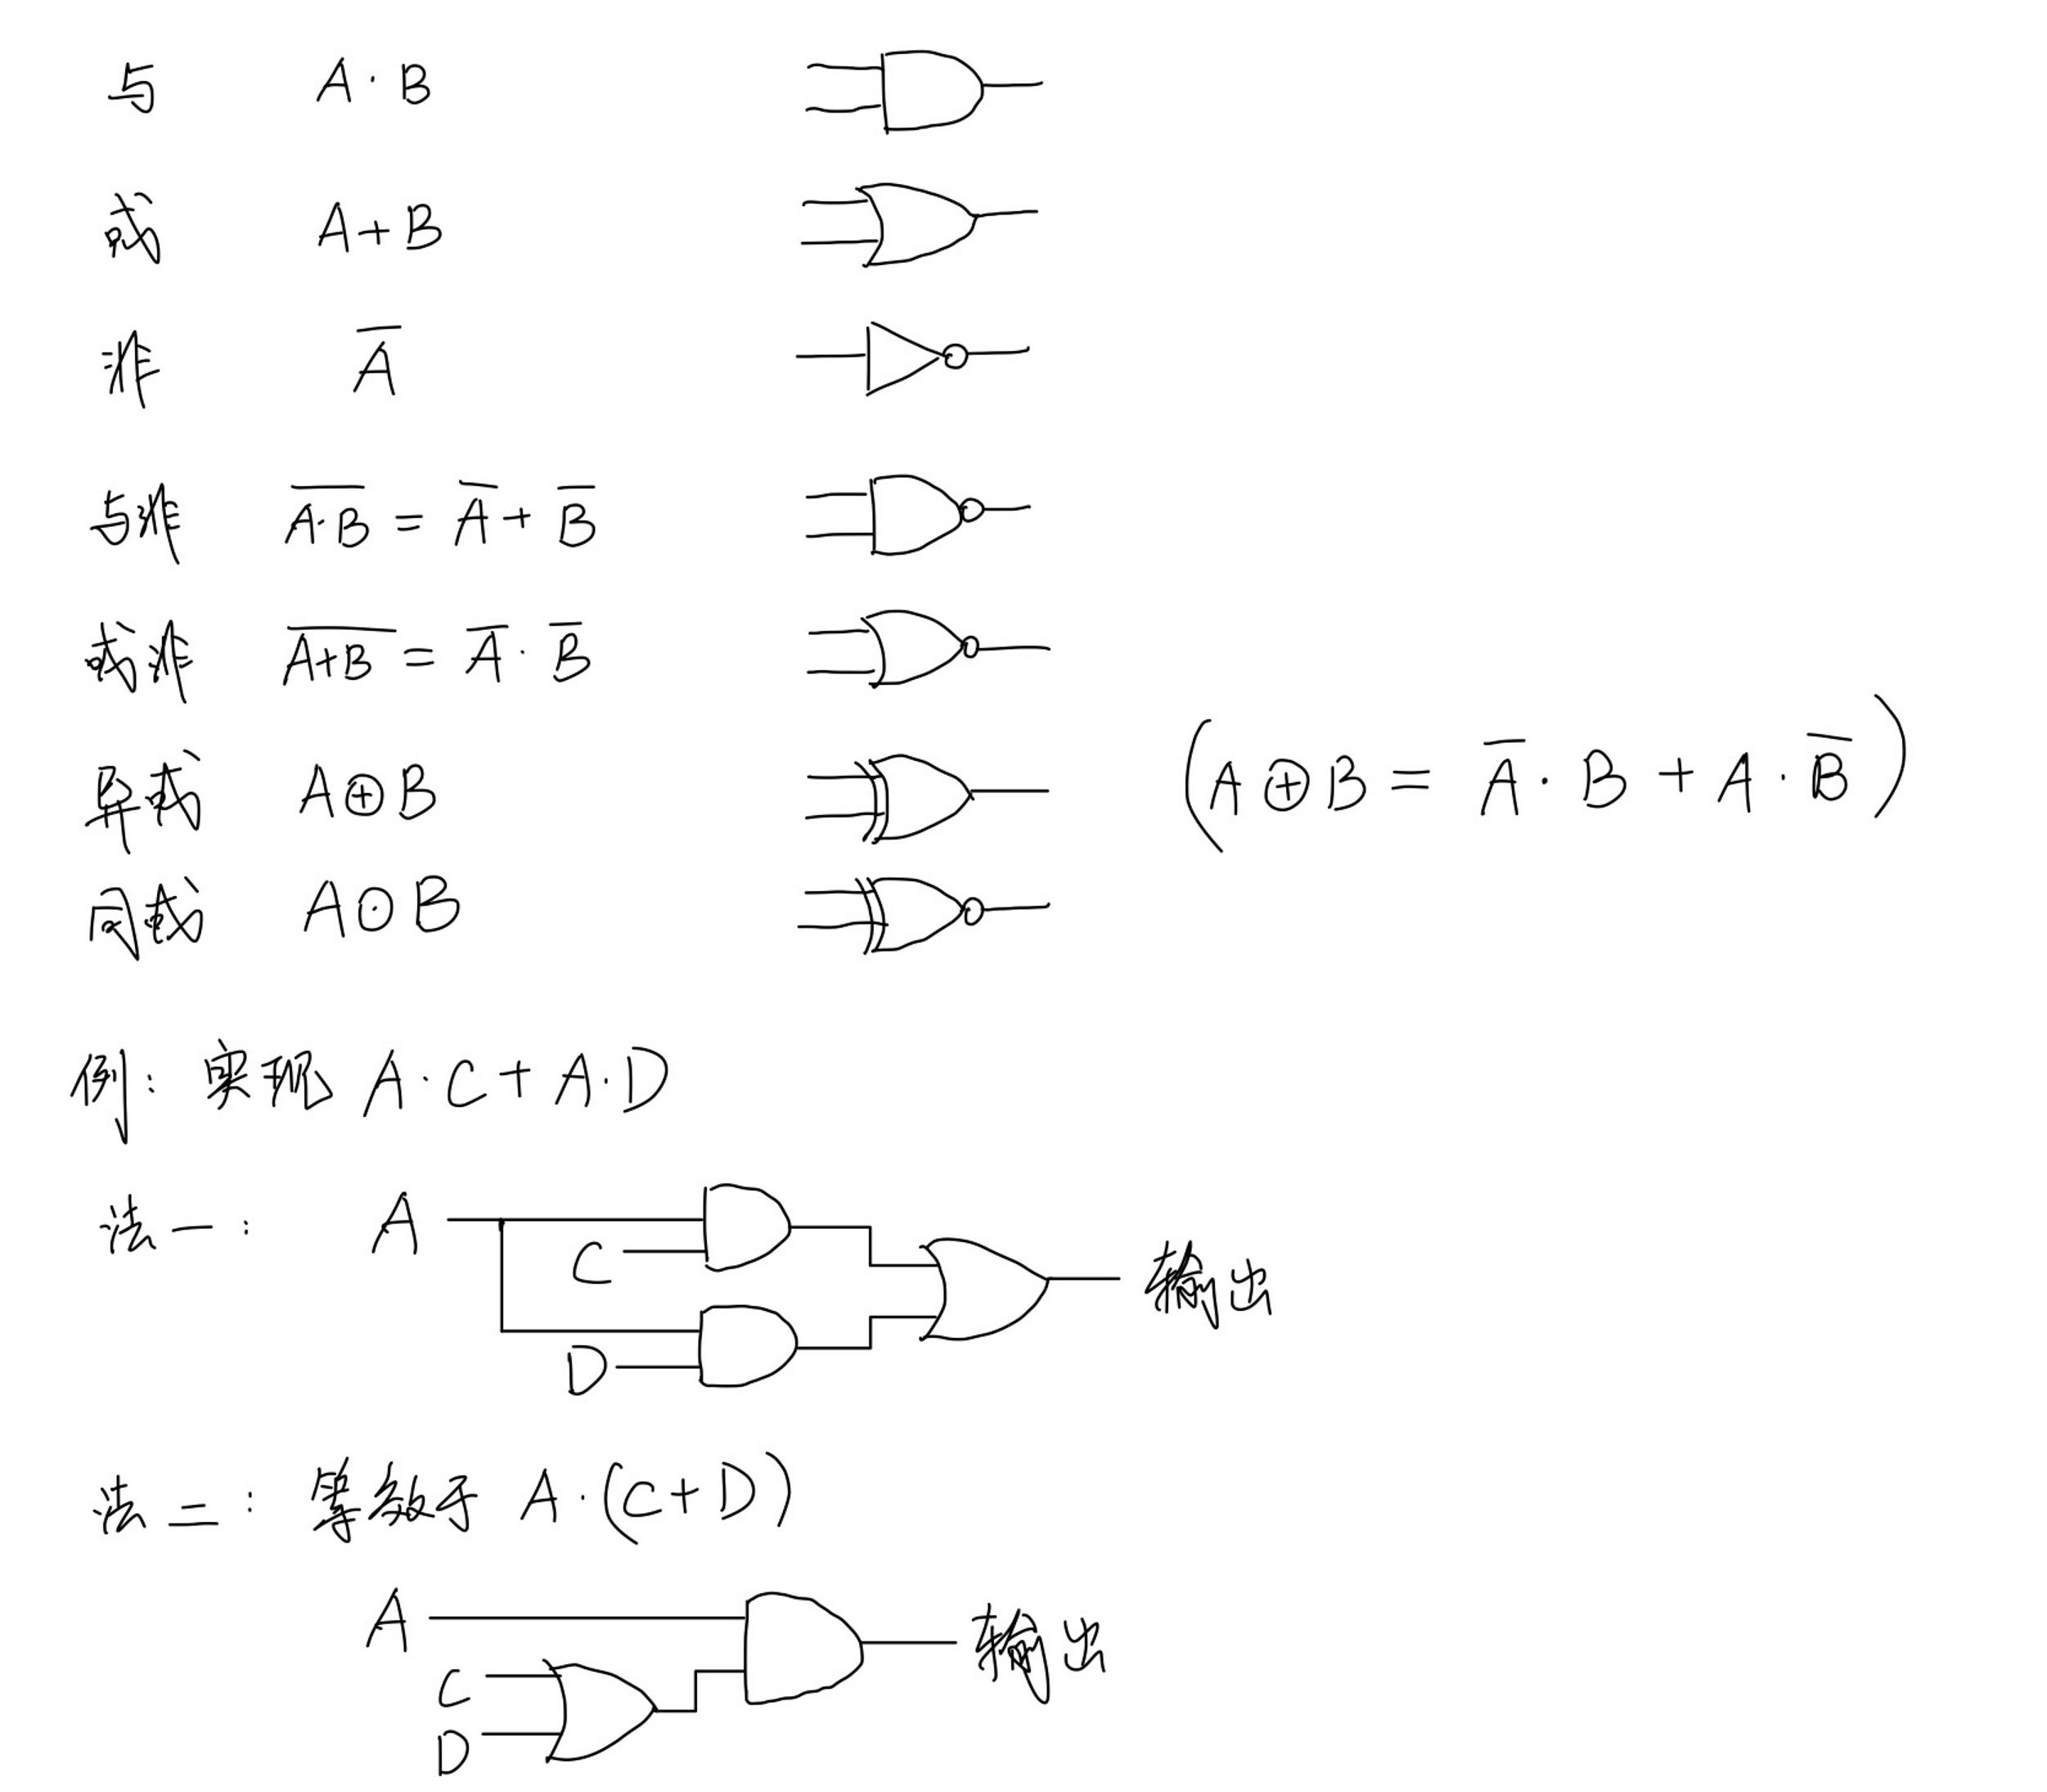 与 A·B
或 A+B
非 A̅
与非 \overline{A·B} = \overline{A} + \overline{B}
或非 \overline{A+B} = \overline{A} · \overline{B}
异或 A⊕B (A⊕B = \overline{A}·B + A·\overline{B})
同或 A⊙B
例: 实现 A·C + A·D
法一: A
C
D
输出
法二: 等效于 A·(C+D)
A
C
D
输出